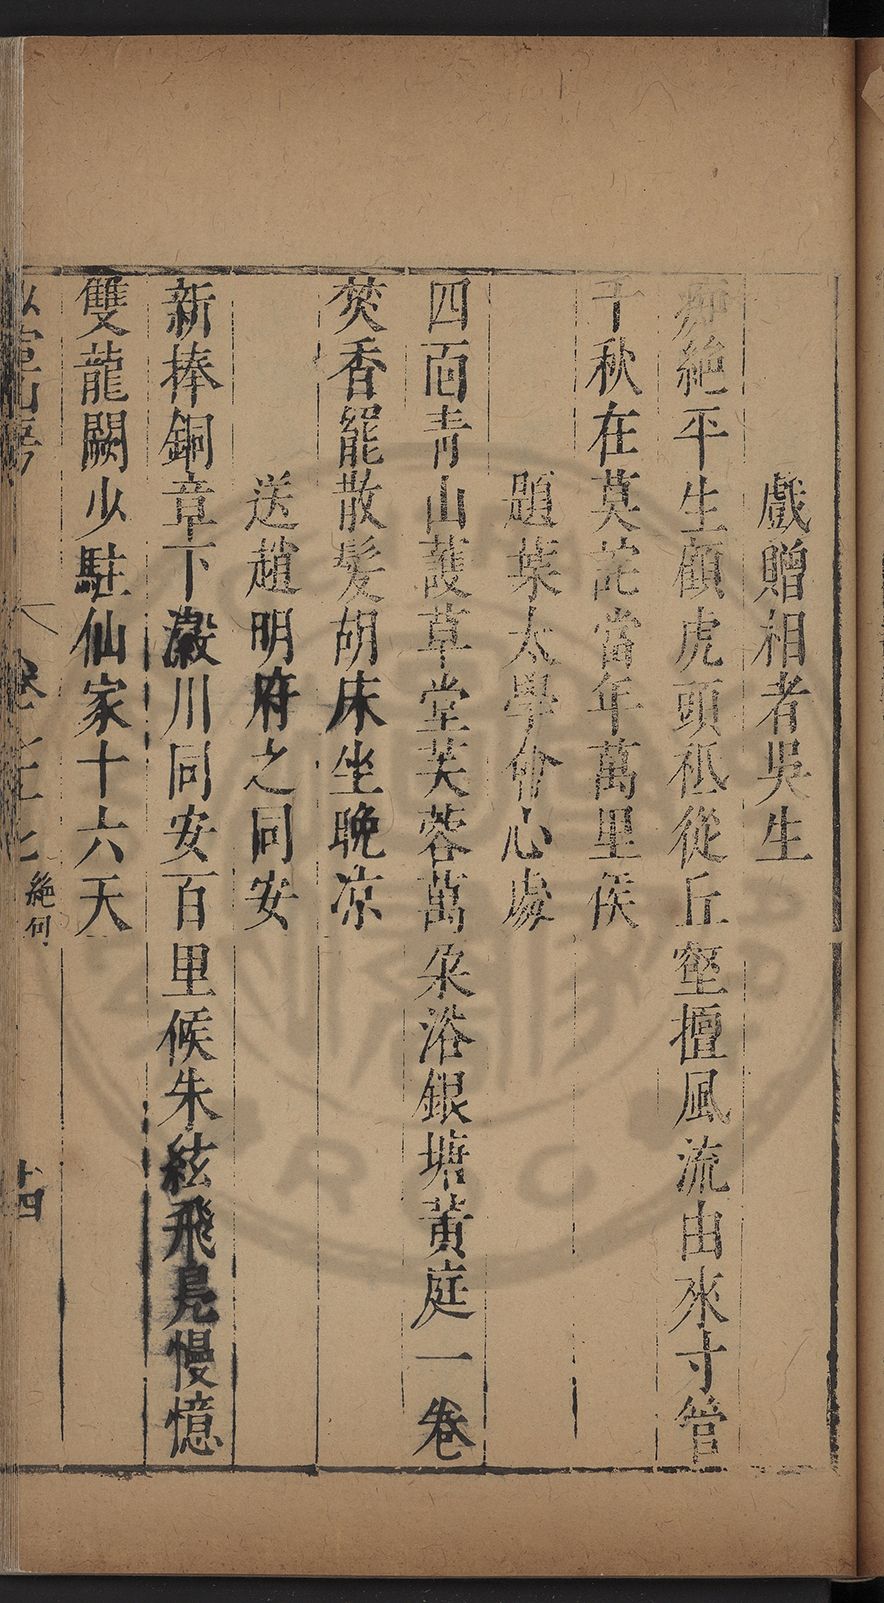 戲贈相者吳生
癡絶平生顧虎頭秪從丘壑擅風流由來寸管
千秋在莫詫當年萬里侯
題葉太學會心處
四面青山護草堂芙蓉萬朶浴銀塘黃庭一卷
焚香罷散髮胡床坐晚凉
送趙明府之同安
新捧銅章下瀫川同安百里候朱絃飛鳧慢憶
雙龍闕少駐仙家十六天
卷之三十
絶句
十四